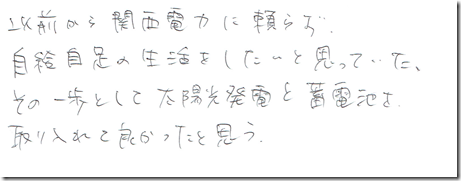 以前から関西電力に頼らず、
自給自足の生活をしたいと思っていた、
その一歩として太陽光発電と蓄電池を
取り入れて良かったと思う。